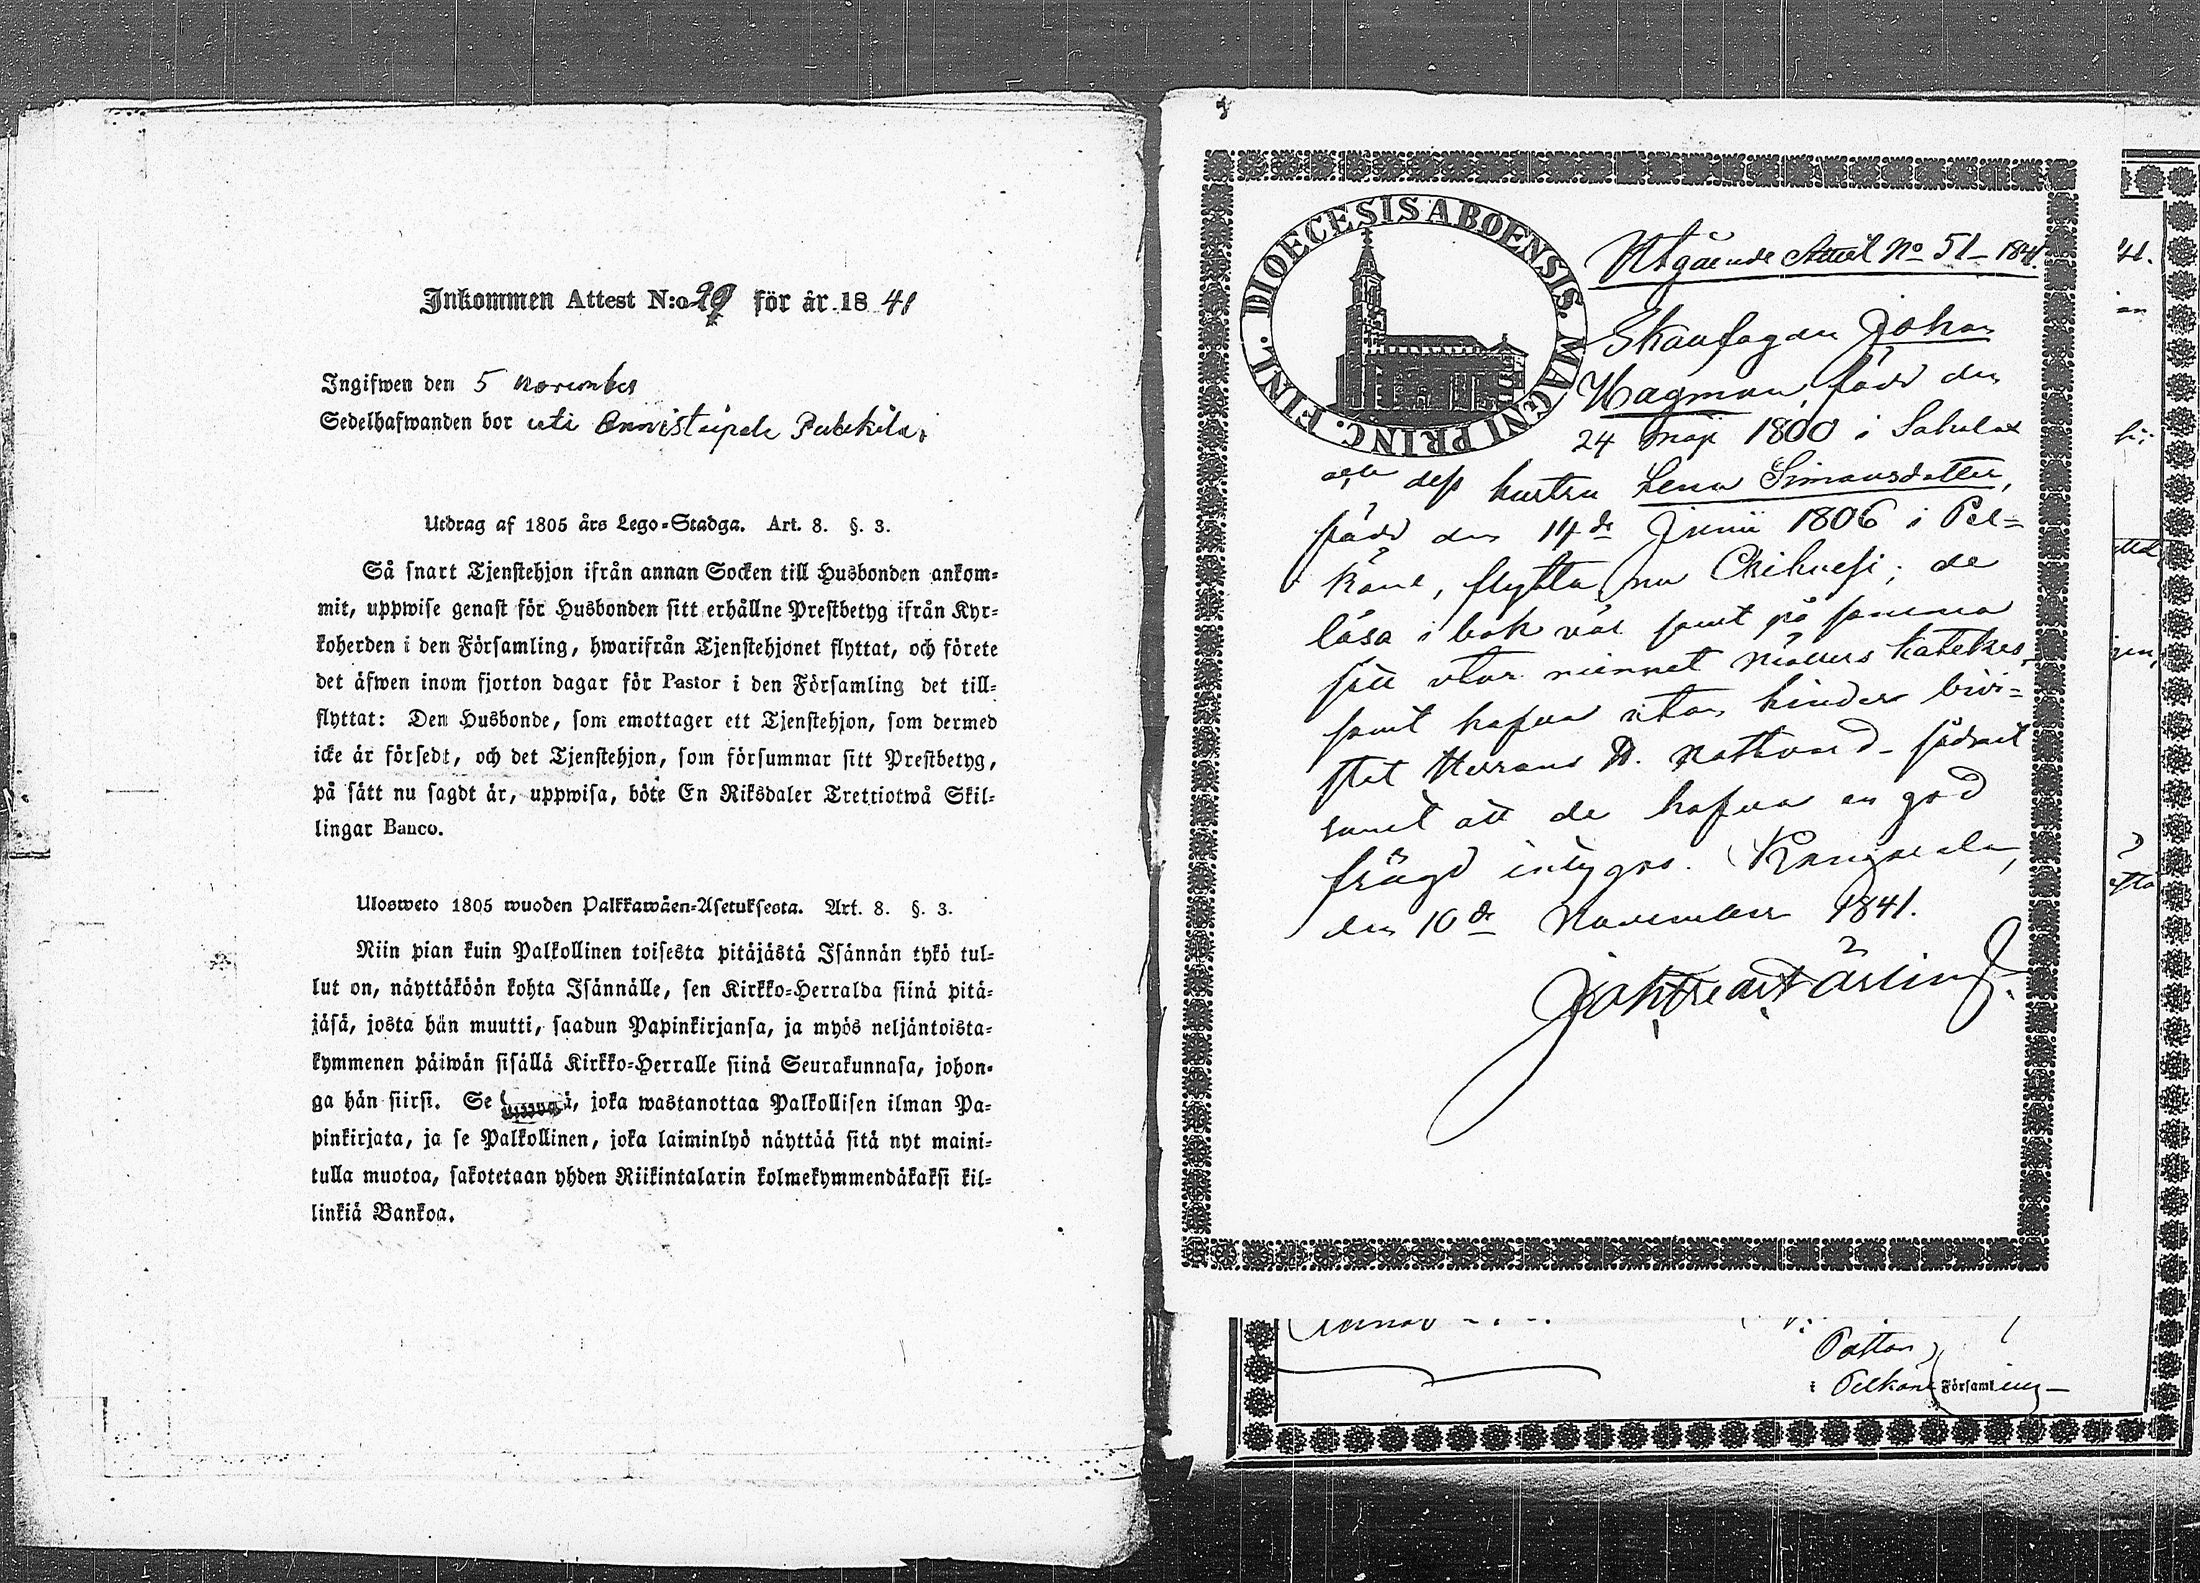 Inkommen Attest N:o 29 för år 1841
Ingifwen den 5 November
Sedelhafwanden bor uti
Utdrag af 1805 års Lego-Stadga. Art. 8. §. 3.
Så snart Tjenstehjon ifrån annan Socken till Husbonden ankom-
mit, uppwise genast för Husbonden sitt erhållne Prestbetyg ifrån Kyr-
koherden i den Församling, hwarifrån Tjenstehjonet flyttat, och förete
det äfwen inom fjorton dagar för Pastor i den Församling det till-
flyttat: Den Husbonde, som emottager ett Tjenstehjon, som dermed
icke är försedt, och det Tjenstehjon, som försummar sitt Prestbetyg,
på sätt nu sagdt är, uppwisa, böte En Riksdaler Trettiotwå Skil-
lingar Banco.
Ulosweto 1805 wuoden Palkkawäen-Asetuksesta. Art. 8. §. 3.
Niin pian kuin Palkollinen toisesta pitäjästä Isännän tykö tul-
lut on, näyttäköön kohta Isännälle, sen Kirkko-Herralda siinä pitä-
jäsä, josta hän muutti, saadun Papinkirjansa, ja myös neljäntoista-
kymmenen päiwän sisällä Kirkko-Herralle siinä Seurakunnasa, johon-
ga hän siirsi. Se joka wastanottaa Palkollisen ilman Pa-
pinkirjata, ja se Palkollinen, joka laiminlyö näyttää sitä nyt maini-
tulla muotoa, sakotetaan yhden Riikintalarin kolmekymmendäkaksi kil-
linkiä Bankoa.
DIOECESIS ABOENSIS. MAGNI PRINC. FINL.
Utgående Attest No 51 - 1841.
Skaufogden Johan
Hagman, född den
24 Maji 1800 i Sahalax
och dess hustru Lena Simonsdotter,
född den 14de Junii 1806 i Pel-
käne, flytta nu; de
läsa i bok väl samt på samma
sätt utur minnet Katekes,
samt hafva utan hinder bivi-
stat Herrans H. Nattvard - hvadmed
samt att de hafva en god
frägd intygas. Kangasala,
den 10de November 1841.
Pastor
i Pelkäne Församling